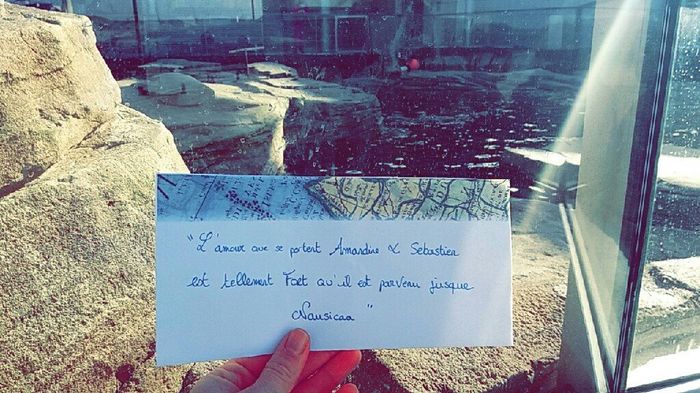 "L'amour que se portent Amandine & Sébastien
est tellement Fort qu'il est parvenu jusque
Nausicaa"